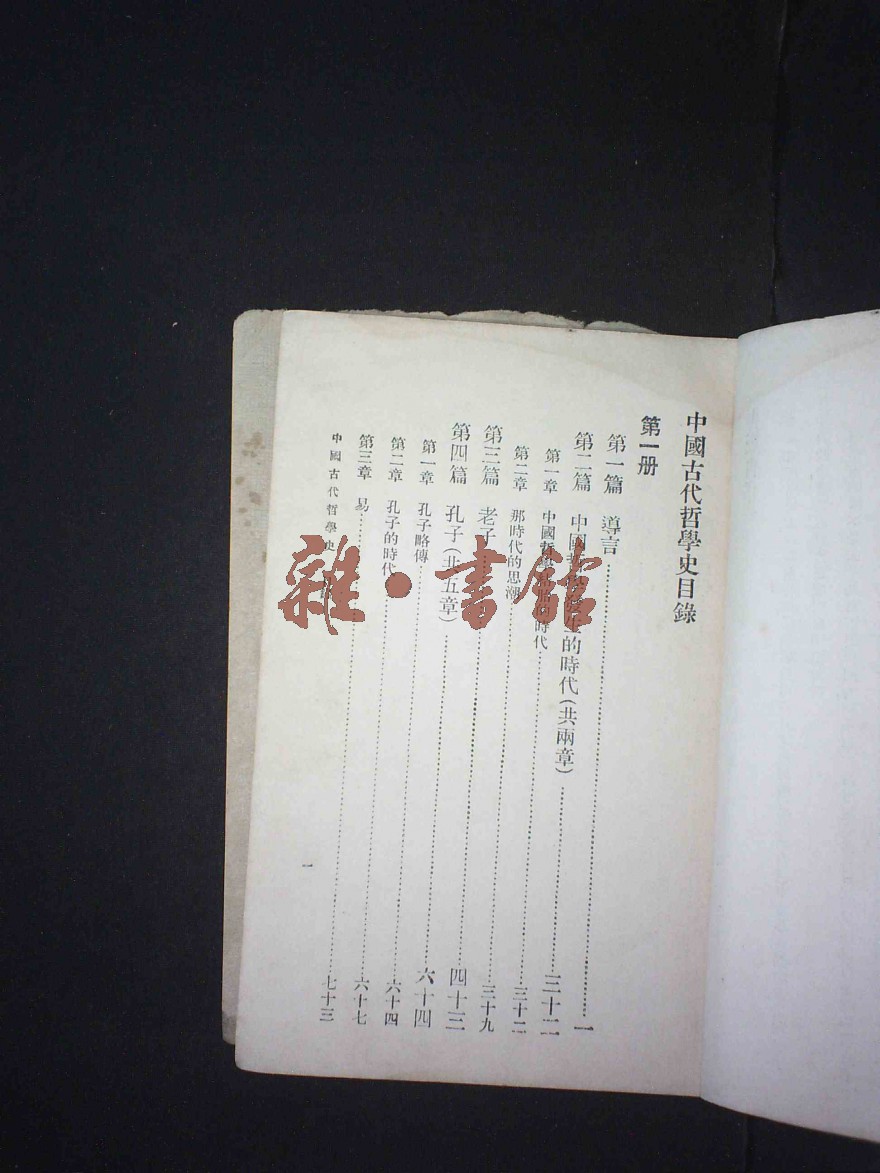 中國古代哲學史目錄
第一册
第一篇 導言 一
第二篇 中國哲學發生的時代(共兩章) 三十二
第一章 中國哲學結胎的時代 三十二
第二章 那時代的思潮 三十九
第三篇 老子 四十三
第四篇 孔子(共五章) 六十四
第一章 孔子略傳 六十四
第二章 孔子的時代 六十七
第三章 易 七十三
中國古代哲學史
一
雜·書館